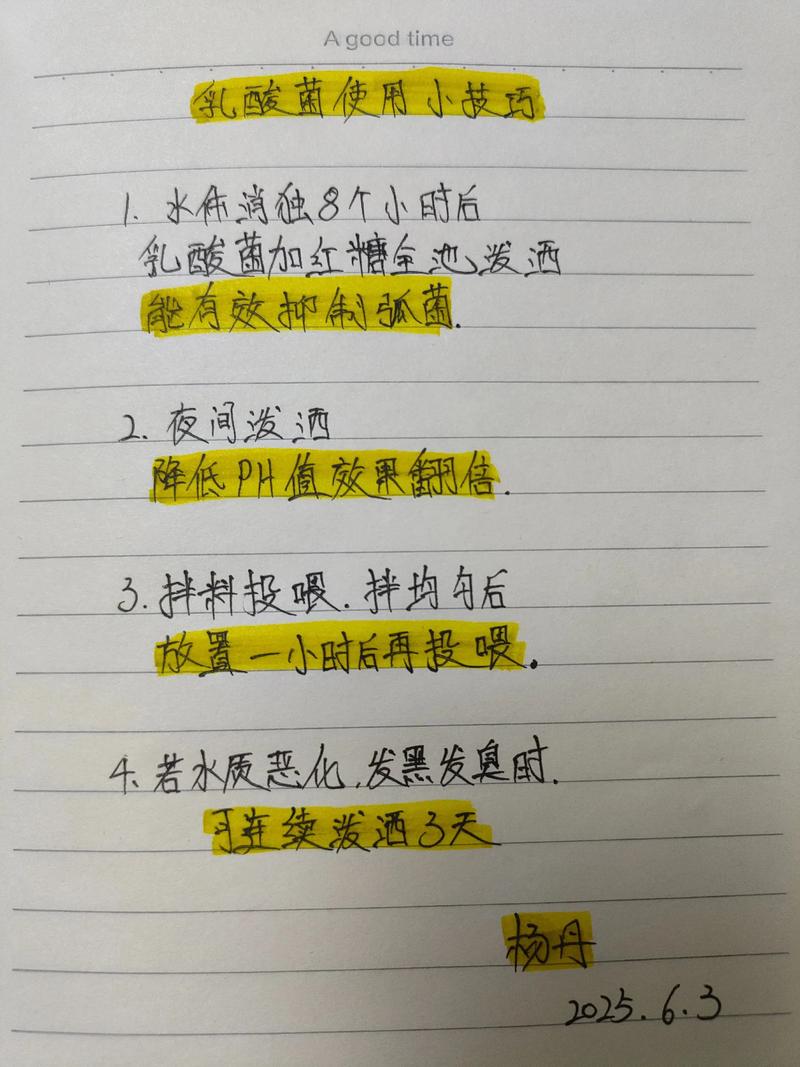 A good time
乳酸菌使用小技巧
1. 水体消独8个小时后
乳酸菌加红糖全池泼洒
能有效抑制弧菌.
2. 夜间泼洒
降低PH值效果翻倍.
3. 拌料投喂.拌均匀后
放置一小时后再投喂。
4. 若水质恶化,发黑发臭时.
可连续泼洒3天
杨丹
2025.6.3